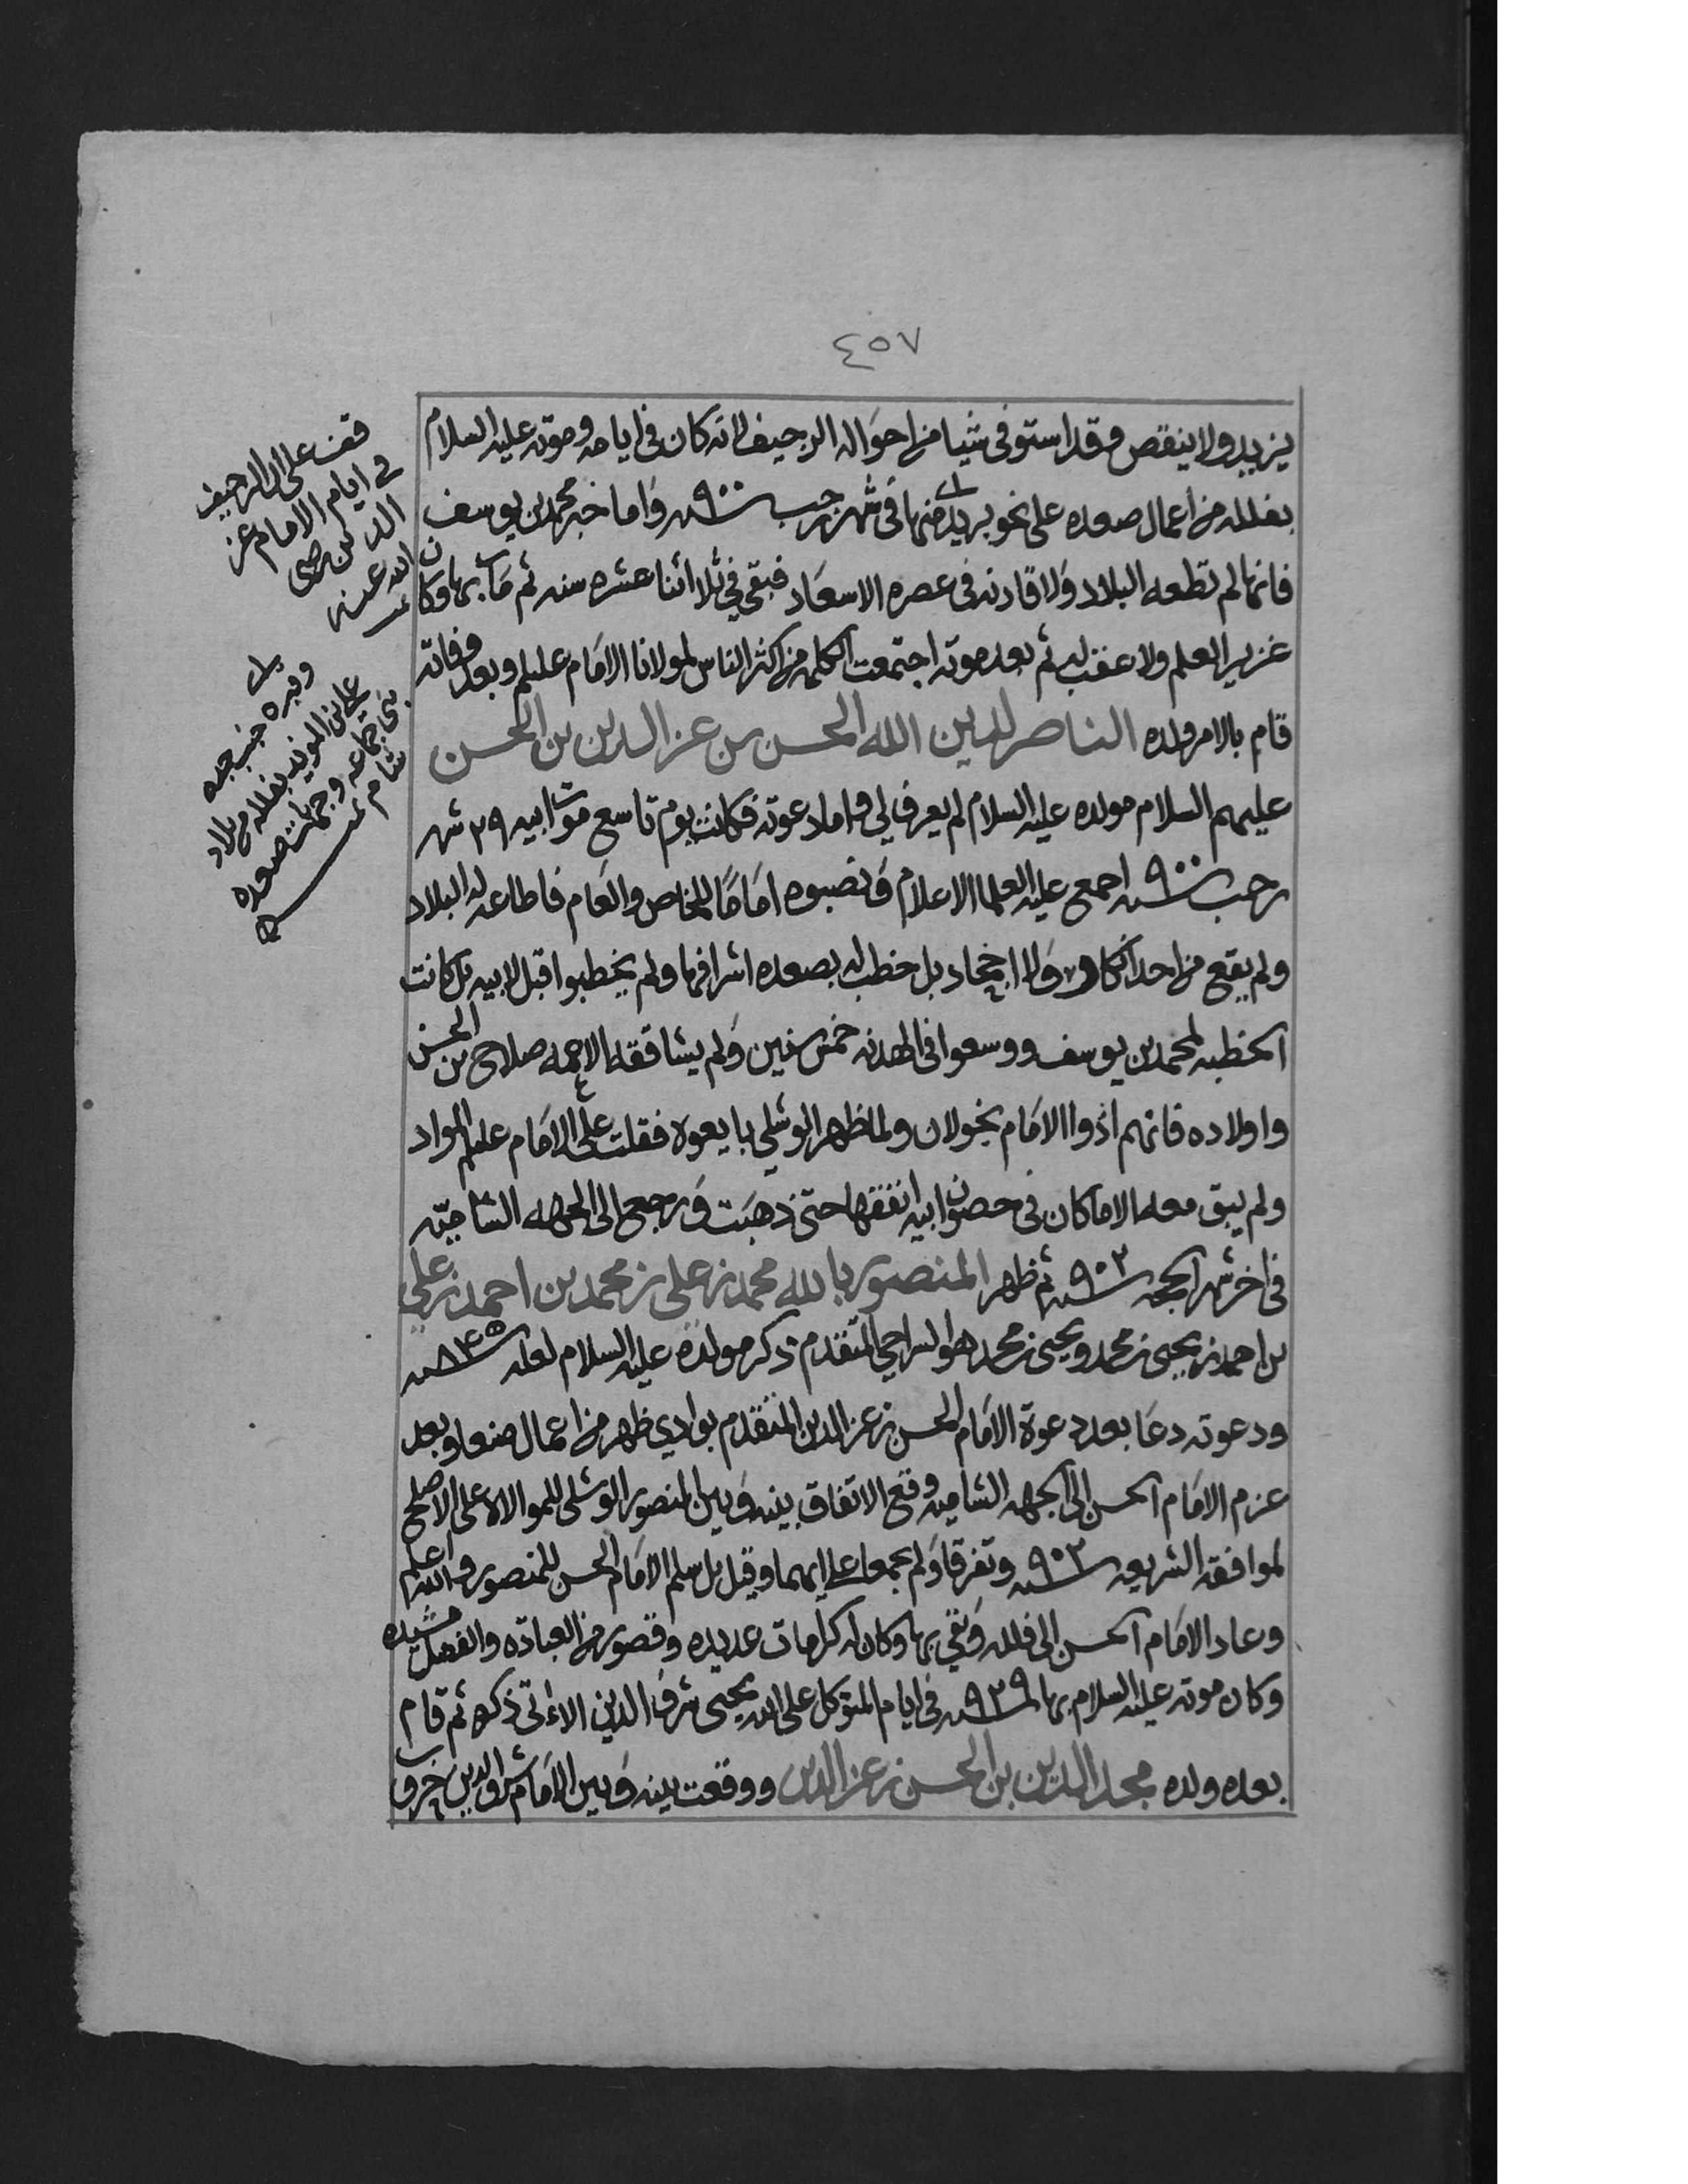 ٤٥٧
يزيد ولا ينقص وقد استوفى شيا من احواله الرحيف لانه كان في ايامه وموته عليه السلام
بفلله من اعمال صعده على نحو بريد منها في شهر رجب سنه ٩٠٠ واما خبر محمد بن يوسف
فانها لم تطعه البلاد ولا قادنه في عصره الاسعاد فبقي في ثلا اثنا عشره سنه ثم مات بها وكان
غزير العلم ولا عقب له ثم بعد موته اجتمعت الكلمه من اكثر الناس لمولانا الامام عليلم وبعد وفاته
قام بالامر ولده الناصر لدين الله الحسن بن عز الدين بن الحسن
عليهم السلام مولده عليه السلام لم يعرف لي واما دعوته فكانت يوم تاسع موت ابيه ٢٩ شهر
رجب سنه ٩٠٠ اجمع عليه العلما الاعلام ونصبوه اماما للخاص والعام فاطاعه له البلاد
ولم يقع من احد انكار ولا اجحاد بل خطب له بصعده اشرافها ولم يخطبوا قبل لابيه بل كانت
الخطبه لمحمد بن يوسف ووسعوا في الهدنه خمس سنين ولم يشاققه الا جمه صلاح بن الحسن
واولاده فانهم اذوا الامام بخولان ولما ظهر الوشلي بايعوه فقلت على الامام عليلم المواد
ولم يبق معه الا ما كان في حصون ابيه انفقها حتى ذهبت ورجع الى الجهه الشاميه
في اخر شهر الحجه سنه ٩٠٢ ثم ظهر المنصور بالله محمد بن علي بن محمد بن احمد بن علي
بن احمد بن يحيى بن محمد ويحيى بن محمد هو السراجي المتقدم ذكر مولده عليه السلام لعله سنه ٨٤٥
ودعوته دعا بعد دعوة الامام الحسن بن عز الدين المتقدم بوادي ظهر من اعمال صنعا وبعد
عزم الامام الحسن الى الجهه الشاميه وقع الاتفاق بينه وبين المنصور الوشلي للموالاه على الاصلح
لموافقه الشريعه سنه ٩٠٣ وتفرقا ولم يجمعا على ايهما وقيل بل سلم الامام الحسن للمنصور والله اعلم
وعاد الامام الحسن الى فلله وبقي بها وكان له كرامات عديده وقصور من العباده والفضل مشيده
وكان موته عليه السلام بها سنه ٩٢٩ في ايام المتوكل على الله يحيى شرف الدين الاتي ذكره ثم قام
بعده ولده مجد الدين بن الحسن بن عز الدين ووقعت بينه وبين الامام شرف الدين حروب
قف على الرحيف
في ايام الامام عز
الدين رضي
الله عنه
وقبره جنب جده
علي بن المويد بفلله من بلاد
بني جماعه وجهات صعده
شام